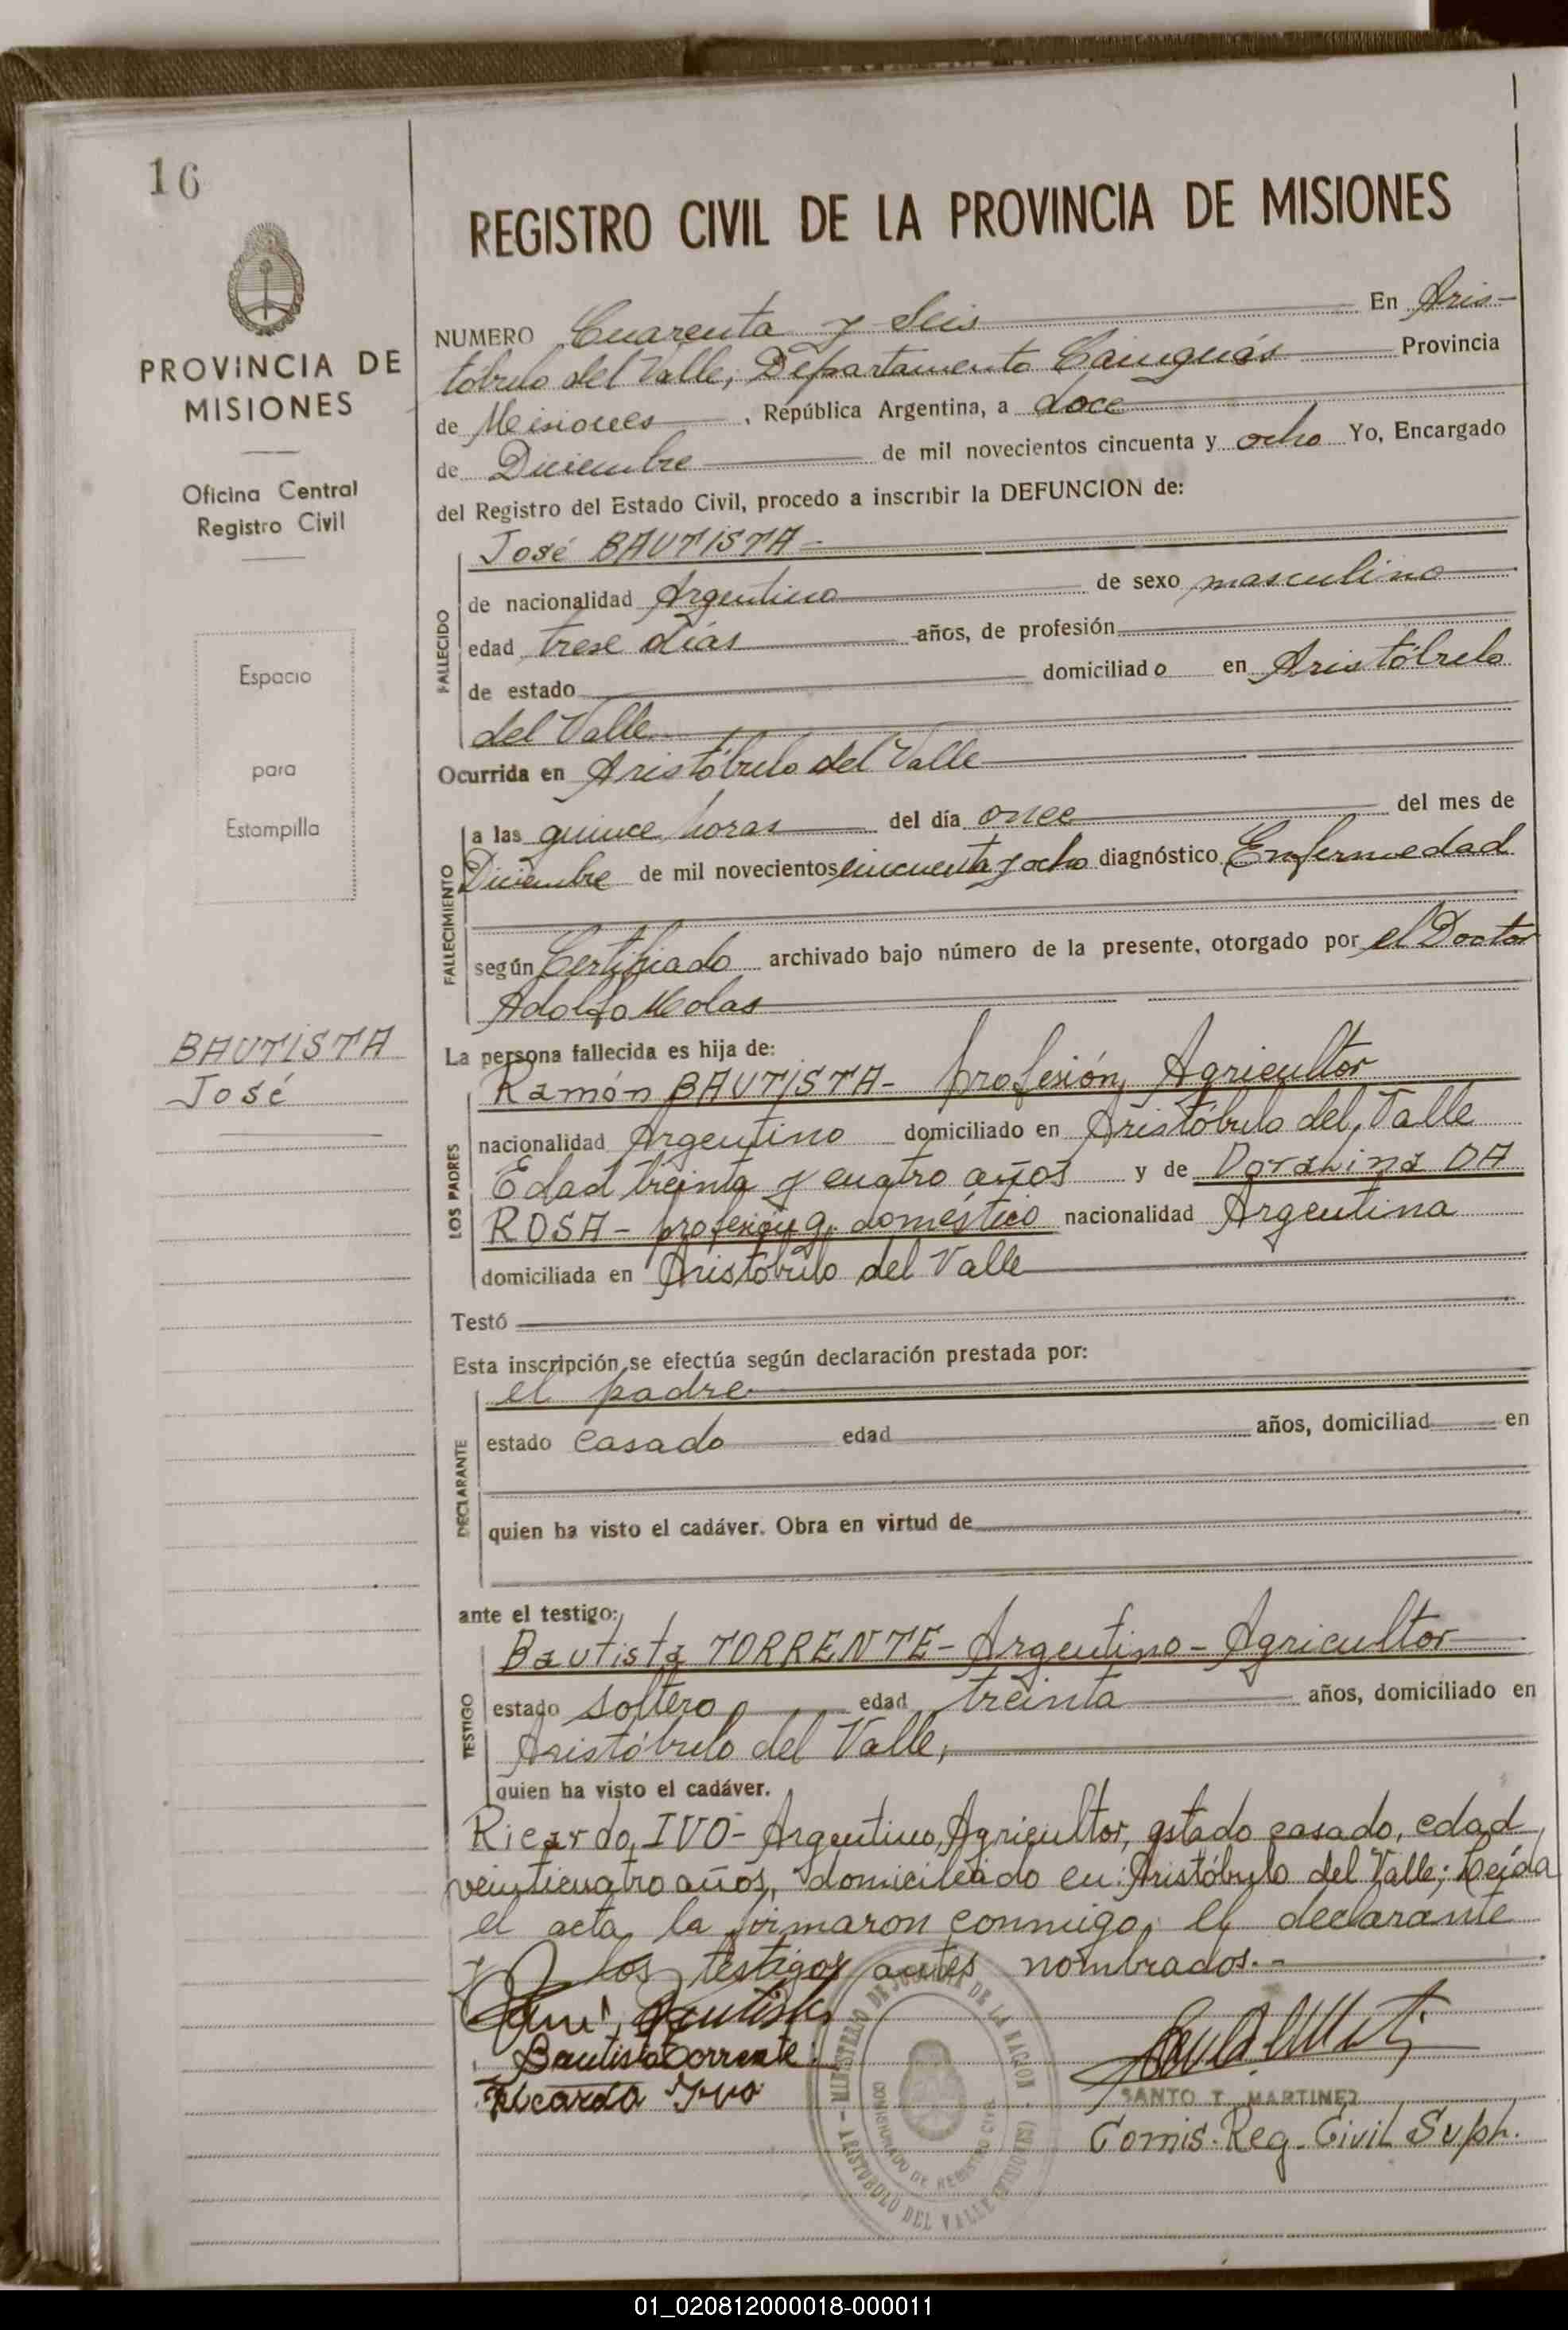 16
PROVINCIA DE
MISIONES
Oficina Central
Registro Civil
Espacio
para
Estampilla
BAUTISTA
José
REGISTRO CIVIL DE LA PROVINCIA DE MISIONES
NUMERO Cuarenta y Seis En Aris-
tóbulo del Valle, Departamento Cainguás Provincia
de Misiones, República Argentina, a doce
de Diciembre de mil novecientos cincuenta y ocho Yo, Encargado
del Registro del Estado Civil, procedo a inscribir la DEFUNCION de:
José BAUTISTA-
FALLECIDO
de nacionalidad Argentino de sexo masculino
edad trese días años, de profesión
de estado domiciliado en Aristóbulo
del Valle
Ocurrida en Aristóbulo del Valle
FALLECIMIENTO
a las quince horas del día once del mes de
Diciembre de mil novecientos cincuenta y ocho diagnóstico Enfermedad
según Certificado archivado bajo número de la presente, otorgado por el Doctor
Adolfo Molas
La persona fallecida es hija de:
LOS PADRES
Ramón BAUTISTA- profesión, Agricultor
nacionalidad Argentino domiciliado en Aristóbulo del Valle
Edad treinta y cuatro años y de Doralina DA
ROSA- profesión q. doméstico nacionalidad Argentina
domiciliada en Aristóbulo del Valle
Testó
Esta inscripción se efectúa según declaración prestada por:
DECLARANTE
el padre
estado casado edad años, domiciliad en
quien ha visto el cadáver. Obra en virtud de
ante el testigo:
TESTIGO
Bautista TORRENTE- Argentino- Agricultor
estado soltero edad treinta años, domiciliado en
Aristóbulo del Valle,
quien ha visto el cadáver.
Ricardo IVO- Argentino, Agricultor, estado casado, edad
veinticuatro años, domiciliado en: Aristóbulo del Valle; Leída
el acta la firmaron conmigo, el declarante
y los testigos antes nombrados.-
Bautista
Bautista Torrente
Ricardo Ivo
MINISTERIO DE JUSTICIA DE LA NACION
COMISIONADO DE REGISTRO CIVIL
ARISTOBULO DEL VALLE (MISIONES)
SANTO T. MARTINEZ
Comis. Reg. Civil Suph.
01_020812000018-000011